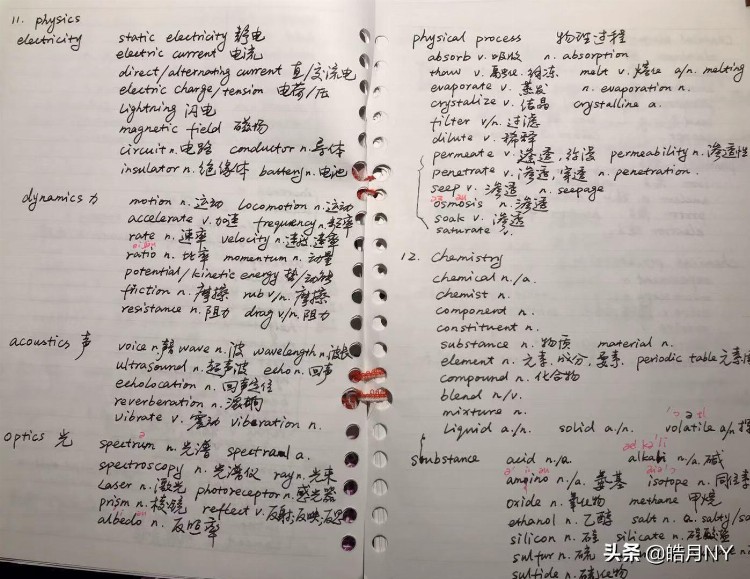 11. physics
electricity static electricity 静电
electric current 电流
direct/alternating current 直/交流电
electric charge/tension 电荷/压
lightning 闪电
magnetic field 磁场
circuit n.电路 conductor n.导体
insulator n.绝缘体 battery n.电池
dynamics 力 motion n.运动 locomotion n.运动
accelerate v.加速 frequency n.频率
rate n.速率 velocity n.速度,速率
ratio n.比率 momentum n.动量
potential/kinetic energy 势/动能
friction n.摩擦 rub v/n.摩擦
resistance n.阻力 drag v/n.阻力
acoustics 声 voice n.声 wave n.波 wavelength n.波长
ultrasound n.超声波 echo n.回声
echolocation n.回声定位
reverberation n.混响
vibrate v.震动 viberation n.
optics 光 spectrum n.光谱 spectral a.
spectroscopy n.光谱仪 ray n.光束
Laser n.激光 photoreceptor n.感光器
prism n.棱镜 reflect v.反射,反映,反思
albedo n.反照率
physical process 物理过程
absorb v.吸收 n. absorption
thaw v.融化,解冻 melt v.熔化 a/n. melting
evaporate v.蒸发 n. evaporation n.
crystalize v.结晶 crystalline a.
filter v/n.过滤
dilute v.稀释
permeate v.渗透,弥漫 permeability n.渗透性
penetrate v.渗透,穿透 n. penetration.
seep v.渗透 n. seepage
osmosis n.渗透
soak v.渗透
saturate v.
12. Chemistry
chemical n./a.
chemist n.
componend n.
constituent n.
substance n.物质 material n.
element n.元素,成分,要素 periodic table 元素
compound n.化合物
blend n/v.
mixture n.
Liquid a./n. solid a./n. volatile a/n
substance acid n./a. alkali n./a.碱
amino n./a.氨基 isotope n.同位素
oxide n.氧化物 methane 甲烷
ethanol n.乙醇 salt n. a. salty/
silicon n.硅 silicate n.硅酸盐
sulfur n.硫
sulfide n.硫化物
头条 @皓月NY